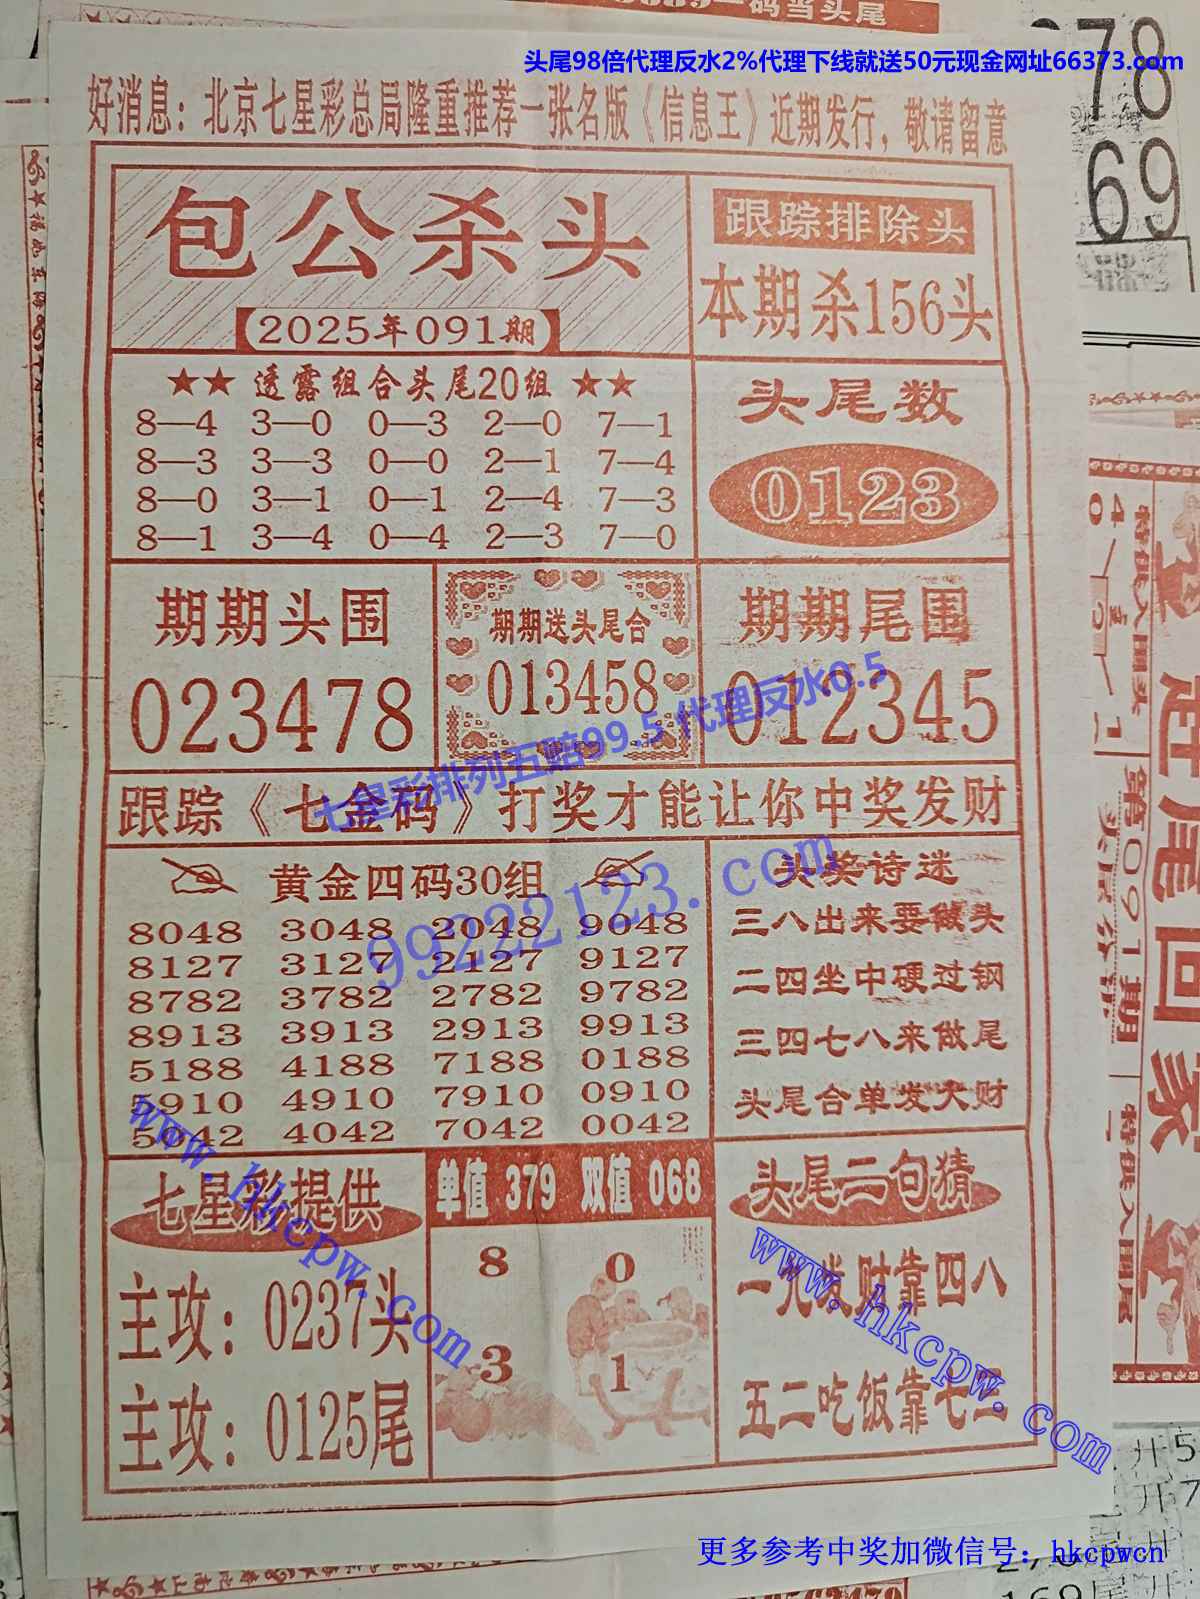 码当头尾
头尾98倍代理反水2%代理下线就送50元现金网址66373.com
78
69
好消息：北京七星彩总局隆重推荐一张名版《信息王》近期发行，敬请留意
包公杀头
2025年091期
跟踪排除头
本期杀156头
★★ 透露组合头尾20组 ★★
8—4 3—0 0—3 2—0 7—1
8—3 3—3 0—0 2—1 7—4
8—0 3—1 0—1 2—4 7—3
8—1 3—4 0—4 2—3 7—0
头尾数
0123
期期头围
023478
期期送头尾合
013458
期期尾围
012345
七星彩排列五赔99.5 代理反水0.5
跟踪《七金码》打奖才能让你中奖发财
黄金四码30组
8048 3048 2048 9048
8127 3127 2127 9127
8782 3782 2782 9782
8913 3913 2913 9913
5188 4188 7188 0188
5910 4910 7910 0910
5042 4042 7042 0042
99222123.com
头奖诗迷
三八出来要做头
二四坐中硬过钢
三四七八来做尾
头尾合单发大财
七星彩提供
主攻：0237头
主攻：0125尾
www.hkcpw.com
单值 379 双值 068
8 0
3 1
头尾二句猜
一九发财靠四八
五二吃饭靠七三
www.hkcpw.com
赶尾回家
第091期
特供入围头
特供入围版
更多参考中奖加微信号：hkcpwcn